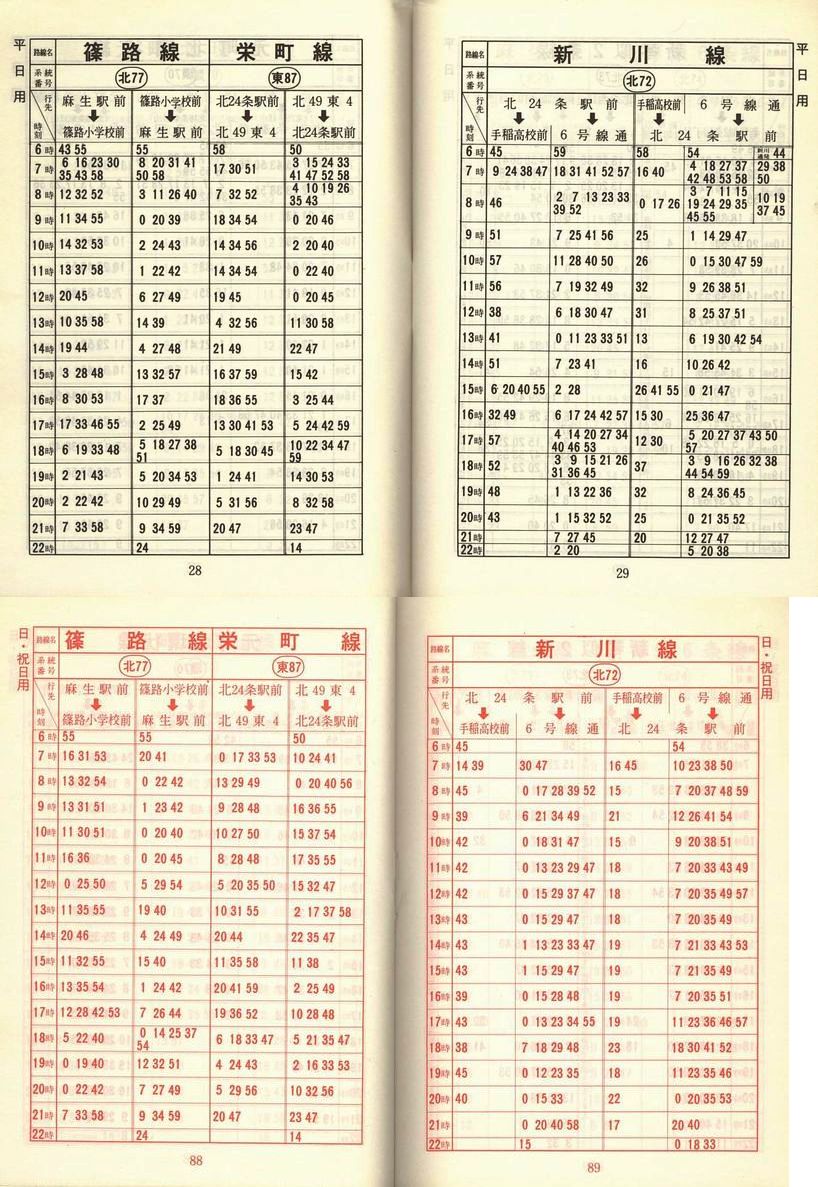 平日用
路線名 篠路線 栄町線
系統番号 北77 東87
行先 時刻 麻生駅前 篠路小学校前 北24条駅前 北49東4
篠路小学校前 麻生駅前 北49東4 北24条駅前
6時 43 55 55 58 50
7時 6 16 23 30 35 43 58 8 20 31 41 50 58 17 30 51 3 15 24 33 41 47 52 58
8時 12 32 52 3 11 26 40 7 32 52 4 10 19 26 35 43
9時 11 34 55 0 20 39 18 34 54 0 20 46
10時 14 32 53 2 24 43 14 34 56 2 20 40
11時 13 37 58 1 22 42 14 34 54 0 22 40
12時 20 45 6 27 49 19 45 0 20 45
13時 10 35 58 14 39 4 32 56 11 30 58
14時 19 44 4 27 48 21 49 22 47
15時 3 28 48 13 32 57 16 37 59 15 42
16時 8 30 53 17 37 18 36 55 3 25 44
17時 17 33 46 55 2 25 49 13 30 41 53 5 24 42 59
18時 6 19 33 48 5 18 27 38 51 5 18 30 45 10 22 34 47 59
19時 2 21 43 5 20 34 53 1 24 41 14 30 53
20時 2 22 42 10 29 49 5 31 56 8 32 58
21時 7 33 58 9 34 59 20 47 23 47
22時 24 14
28
平日用
路線名 新川線
系統番号 北72
行先 時刻 北24条駅前 手稲高校前 6号線通
手稲高校前 6号線通 北24条駅前
6時 45 59 58 54 44
7時 9 24 38 47 18 31 41 52 57 16 40 4 18 27 37 42 48 53 58 29 38 50
8時 46 2 7 13 23 33 39 52 0 17 26 3 7 11 15 19 24 29 35 45 55 10 19 37 45
9時 51 7 25 41 56 25 1 14 29 47
10時 57 11 28 40 50 26 0 15 30 47 59
11時 56 7 19 32 49 32 9 26 38 51
12時 38 6 18 30 47 31 8 25 37 51
13時 41 0 11 23 33 51 13 6 19 30 42 54
14時 51 7 23 41 16 10 26 42
15時 6 20 40 55 2 28 26 41 55 0 21 47
16時 32 49 6 17 24 42 57 15 30 25 36 47
17時 57 4 14 20 27 34 40 46 53 12 30 5 20 27 37 43 50 57
18時 52 3 9 15 21 26 31 36 45 37 3 9 16 26 32 38 44 54 59
19時 48 1 13 22 36 32 8 24 36 45
20時 43 1 15 32 52 25 0 21 35 52
21時 7 27 45 20 12 27 47
22時 2 20 5 20 38
29
日・祝日用
路線名 篠路線 栄町線
系統番号 北77 東87
行先 時刻 麻生駅前 篠路小学校前 北24条駅前 北49東4
篠路小学校前 麻生駅前 北49東4 北24条駅前
6時 55 55 50
7時 16 31 53 20 41 0 17 33 53 10 24 41
8時 13 32 54 0 22 42 13 29 49 0 20 40 56
9時 13 31 51 1 23 42 9 28 48 16 36 55
10時 11 30 51 0 20 40 10 27 50 15 37 54
11時 16 36 0 20 45 8 28 48 17 35 55
12時 0 25 50 5 29 54 5 20 35 50 15 32 47
13時 11 35 55 19 40 10 31 55 2 17 37 58
14時 20 46 4 24 49 20 44 22 35 47
15時 11 32 55 15 40 11 35 58 11 38
16時 13 35 54 1 24 42 20 41 59 2 25 49
17時 12 28 42 53 7 26 44 19 36 52 10 28 48
18時 5 22 40 0 14 25 37 54 6 18 33 47 5 21 35 47
19時 0 19 40 12 32 51 4 24 43 2 16 33 53
20時 0 22 42 7 27 49 5 29 56 10 32 56
21時 7 33 58 9 34 59 20 47 23 47
22時 24 14
88
日・祝日用
路線名 新川線
系統番号 北72
行先 時刻 北24条駅前 手稲高校前 6号線通
手稲高校前 6号線通 北24条駅前
6時 45 54
7時 14 39 30 47 16 45 10 23 38 50
8時 45 0 17 28 39 52 15 7 20 37 48 59
9時 39 6 21 34 49 21 12 26 41 54
10時 42 0 18 31 47 15 9 20 38 51
11時 42 0 13 23 29 47 18 7 20 33 43 49
12時 42 0 15 29 37 47 18 7 20 35 49 57
13時 43 0 15 29 47 18 7 20 35 49
14時 43 1 13 23 33 47 19 7 21 33 43 53
15時 43 1 15 29 47 19 7 21 35 49
16時 39 0 15 28 48 19 7 20 35 51
17時 43 0 13 23 34 55 19 11 23 36 46 57
18時 38 7 18 29 48 23 18 30 41 52
19時 45 0 12 23 35 18 11 23 35 46
20時 40 0 15 33 22 0 20 35 53
21時 0 20 40 58 17 20 40
22時 15 0 18 33
89